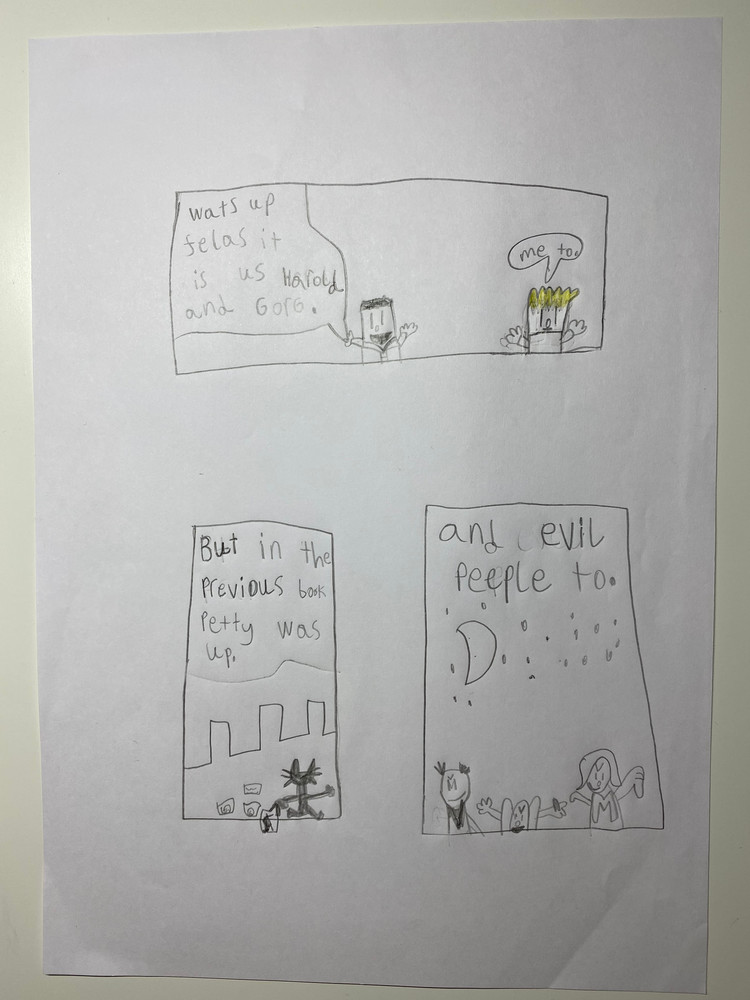 wats up
felas it
is us Harold
and Gorg.
me to.
But in the
previous book
Petty was
up.
and evil
peeple to.
M